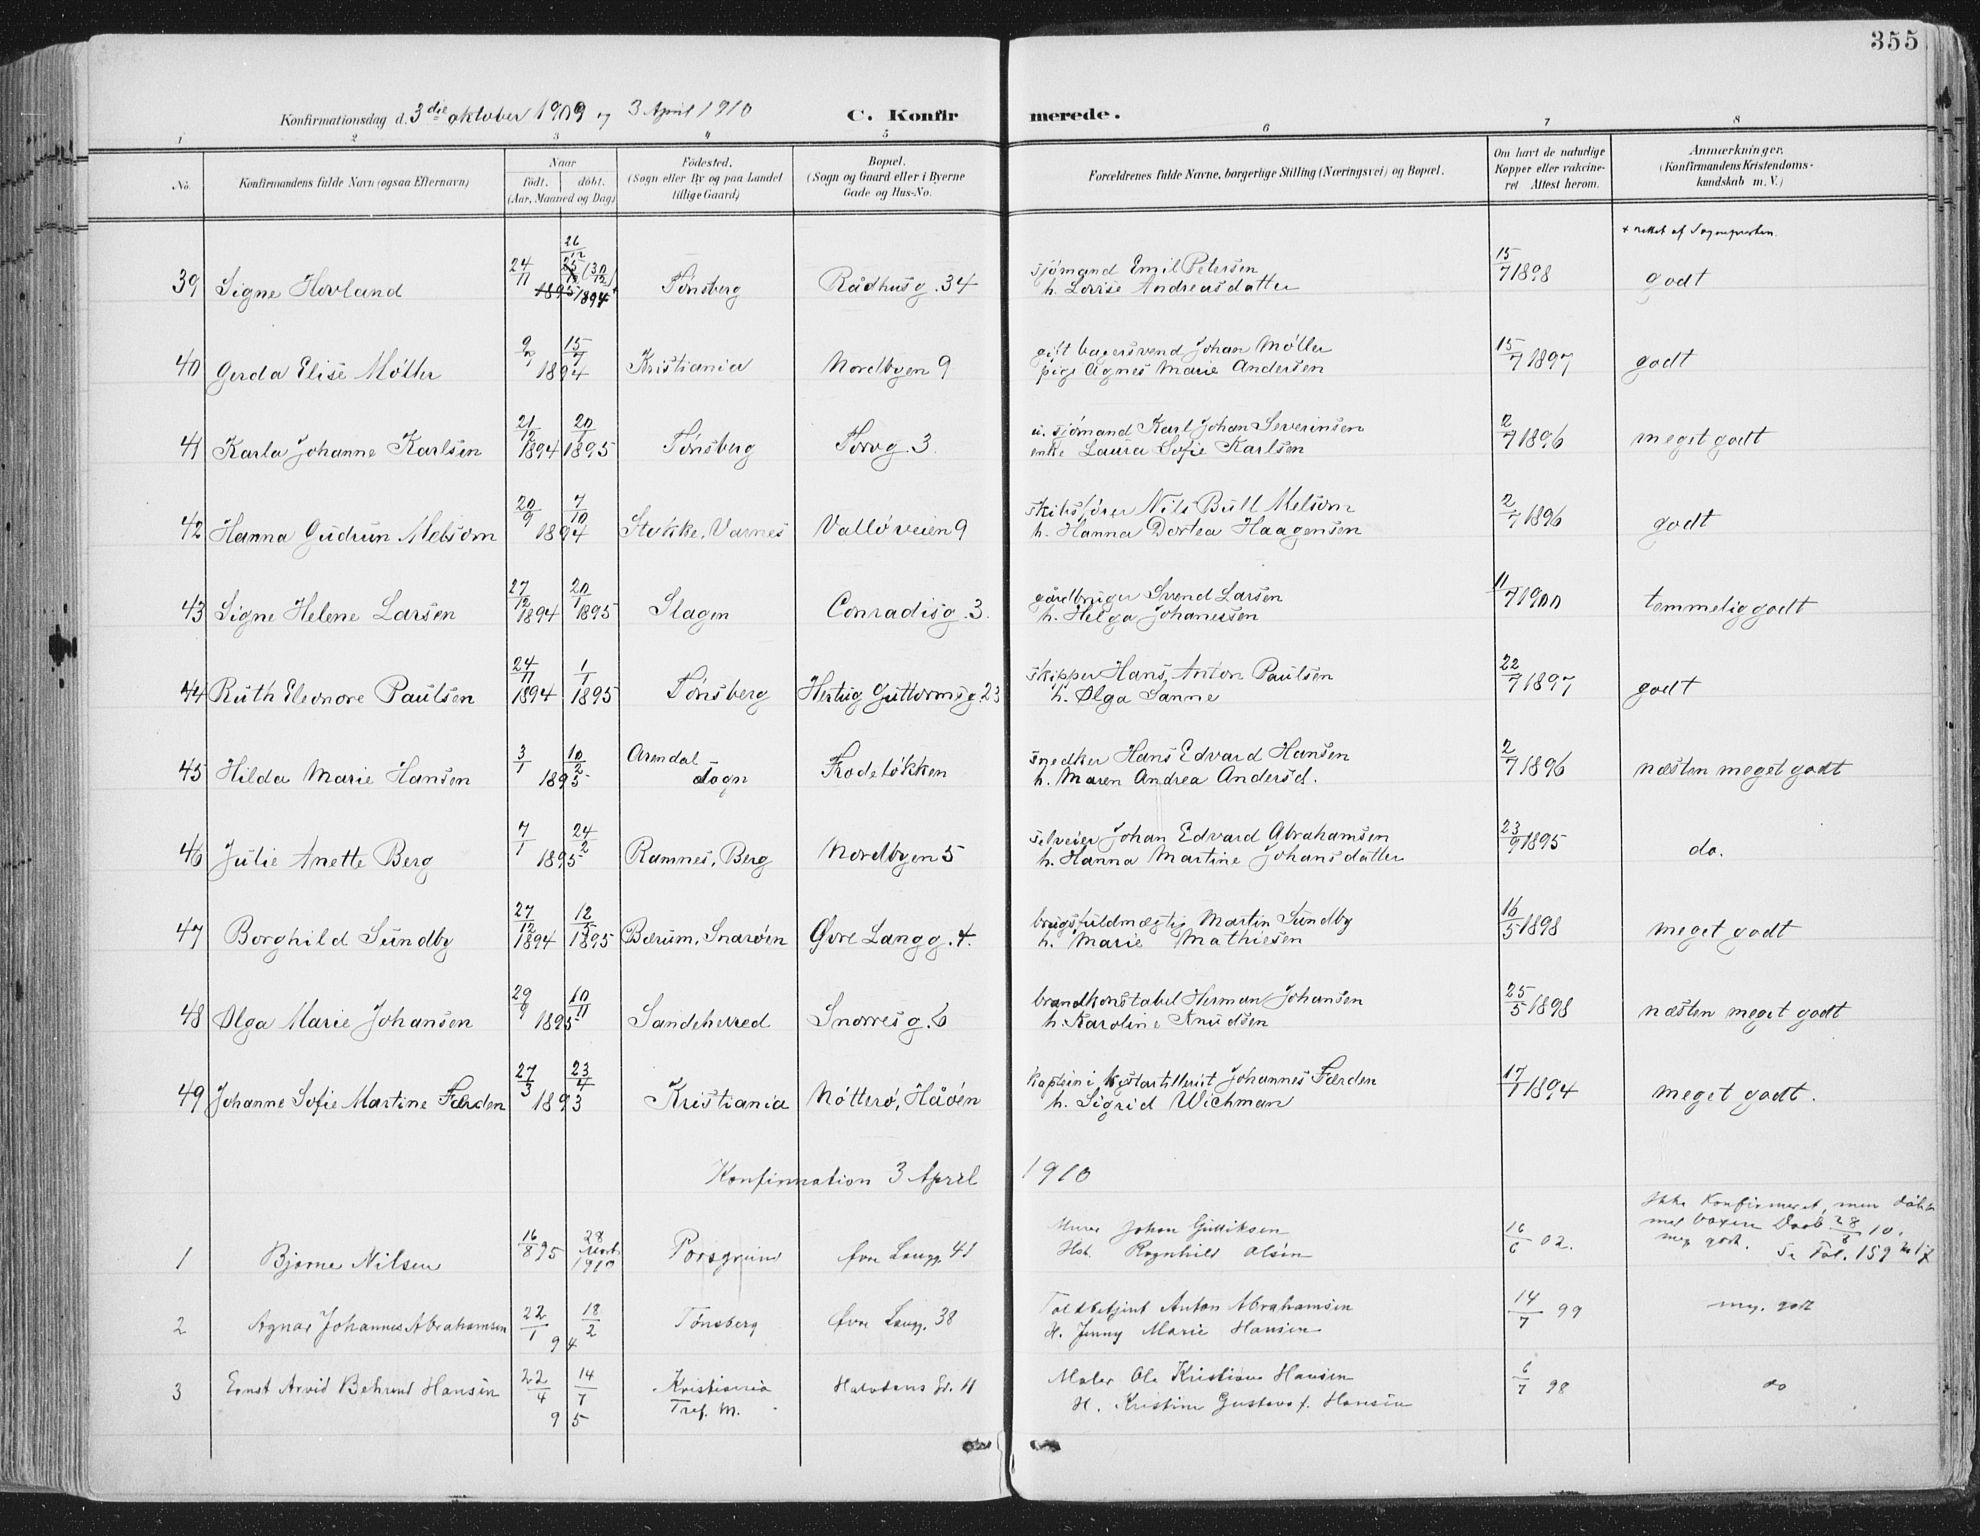 355
Konfirmationsdag d. 3die oktober 1909 og 3 April 1910 C. Konfirmerede.
1 2 3 4 5 6 7 8
No. Konfirmandens fulde Navn (ogsaa Efternavn) Naar født. døbt. (Aar, Maaned og Dag) Fødested. (Sogn eller By og paa Landet tillige Gaard) Bopæl. (Sogn og Gaard eller i Byerne Gade og Hus-No. Forældrenes fulde Navne, borgerlige Stilling (Næringsvei) og Bopæl. Om havt de naturlige Kopper eller vakcineret Attest herom. Anmærkninger. (Konfirmandens Kristendomskundskab m. V.)
+ rettet af Sognepresten.
39 Signe Hovland 24/11 26/12 (30/12) 1895 1894+ Tønsberg Rådhusg. 34 sjømand Emil Petersen h. Lovise Andreasdatter 15/7 1898 godt
40 Gerda Elise Møller 9/7 15/7 1894 Kristiania Nordbyen 9 gift bagersvend Johan Møller pige Agnes Marie Andersen 15/7 1897 godt
41 Karla Johanne Karlsen 21/12 1894 20/1 1895 Tønsberg Torvg. 3 u. sjømand Karl Johan Severinsen enke Laura Sofie Karlsen 2/7 1896 meget godt
42 Hanna Gudrun Melsom 20/9 7/10 1894 Stokke, Varnes Valløveien 9 skibsfører Nils Bull Melsom h. Hanna Dortea Haagensen 2/7 1896 godt
43 Signe Helene Larsen 27/12 1894 20/1 1895 Slagen Conradisg. 3. gårdbruger Svend Larsen h. Helga Johanessen 11/7 1900 temmelig godt
44 Ruth Eleonore Paulsen 24/11 1894 1/1 1895 Tønsberg Hertug Guttormsg. 23 skipper Hans Anton Paulsen h. Olga Sanne 22/7 1897 godt
45 Hilda Marie Hansen 3/1 10/2 1895 Arendal sogn Frodeløkken snedker Hans Edvard Hansen h. Maren Andrea Andersd. 2/7 1896 næsten meget godt
46 Julie Anette Berg 7/1 24/2 1895 Ramnes, Berg Nordbyen 5 selveier Johan Edvard Abrahamsen h. Hanna Martine Johansdatter 23/9 1895 do.
47 Borghild Sundby 27/12 1894 12/5 1895 Bærum, Snarøen Øvre Langg. 4. brugsfuldmægtig Martin Sundby h. Marie Mathiesen 16/5 1898 meget godt
48 Olga Marie Johansen 29/9 10/11 1895 Sandeherred Snorresg. 6 brandkonstabel Herman Johansen h. Karoline Knudsen 25/5 1898 næsten meget godt
49 Johanne Sofie Martine Færden 27/3 23/4 1893 Kristiania Nøtterø, Håøen kaptein i kystartilleriet Johannes Færden h. Sigrid Wichman 17/1 1894 meget godt.
Konfirmation 3 April 1910
1 Bjarne Nilsen 16/8 95 28 1910 Porsgrund Øvre Langg. 41 Murer Johan Gulliksen Hst. Ragnhild Olsen 16/6 02. Ikke Konfirmeret, men døbt med voxen Daab 28/3 10. meg. godt. Se Fol. 159
2 Agnar Johannes Abrahamsen 22/1 18/2 94 Tønsberg Øvre Langg. 38 Toldbetjent Anton Abrahamsen H. Jenny Marie Hansen 14/7 99 meg. godt
3 Ernst Arvid Behrend Hansen 22/4 14/7 95 Kristiania Tref. M. Halvdans Gd. 11 Maler Ole Kristian Hansen H. Kristine Gustava f. Hansen 6/7 98 do